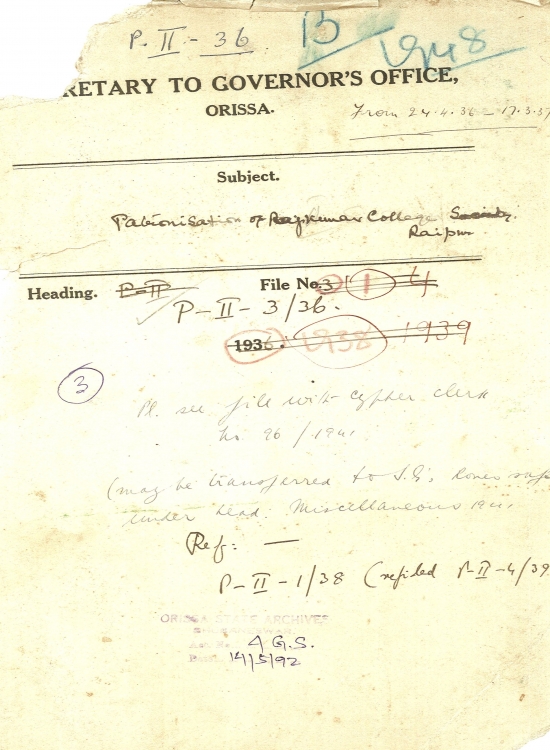 P-II-36
B
1948
RETARY TO GOVERNOR'S OFFICE,
ORISSA.
From 24.4.36 - 17.3.37
Subject.
Patronisation of Rajkumar College Society.
Raipur
Heading. P-II File No. 3 1 4
P-II-3/36.
1936. 1938 1939
3
Pl. see file with cypher clerk
No 96/1941
(may be transferred to
under head: Miscellaneous 1941
Ref: —
P-II-1/38 (refiled P-II-4/39
ORISSA STATE ARCHIVES
4 G.S.
14/5/92